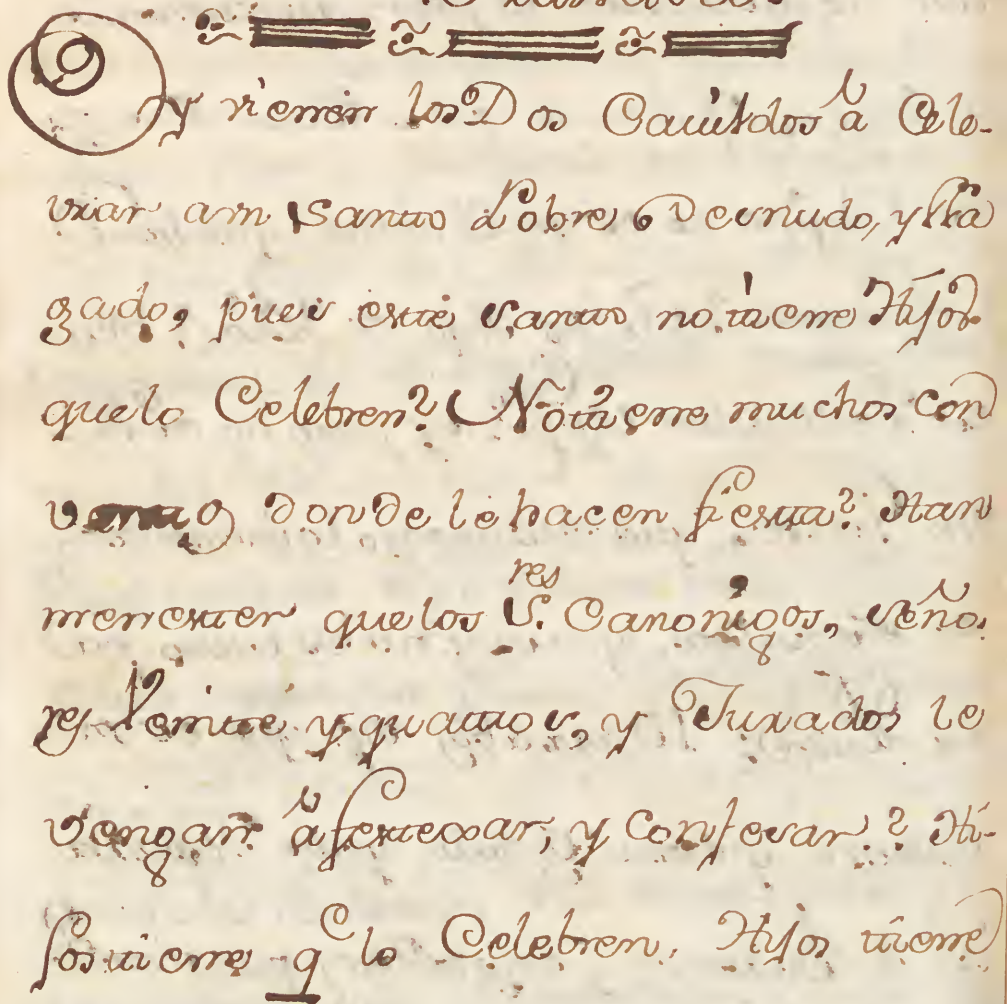 Oy vienen los Dos Cavildos â Cele-
vrar a un Santo Pobre Desnudo, y lla
gado, pues este Santo no tiene Hijos
que lo Celebren? No tiene muchos con
ventos donde le hacen fiesta? Han
menester que los S.res Canonigos, seño.
res Veinte y quatros, y Jurados le
vengan â festexar, y Confesar? Hi-
jos tiene q^e lo Celebren, Hijos tiene